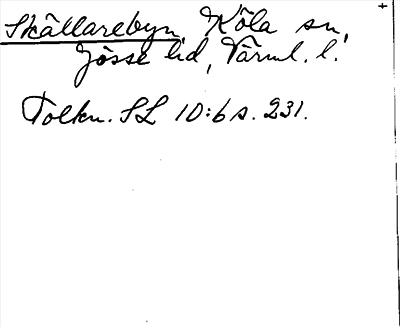 Skällarebyn Köla sn,
Jösse hd, Värml. l.
Tolkn. SL 10:6 s. 231.